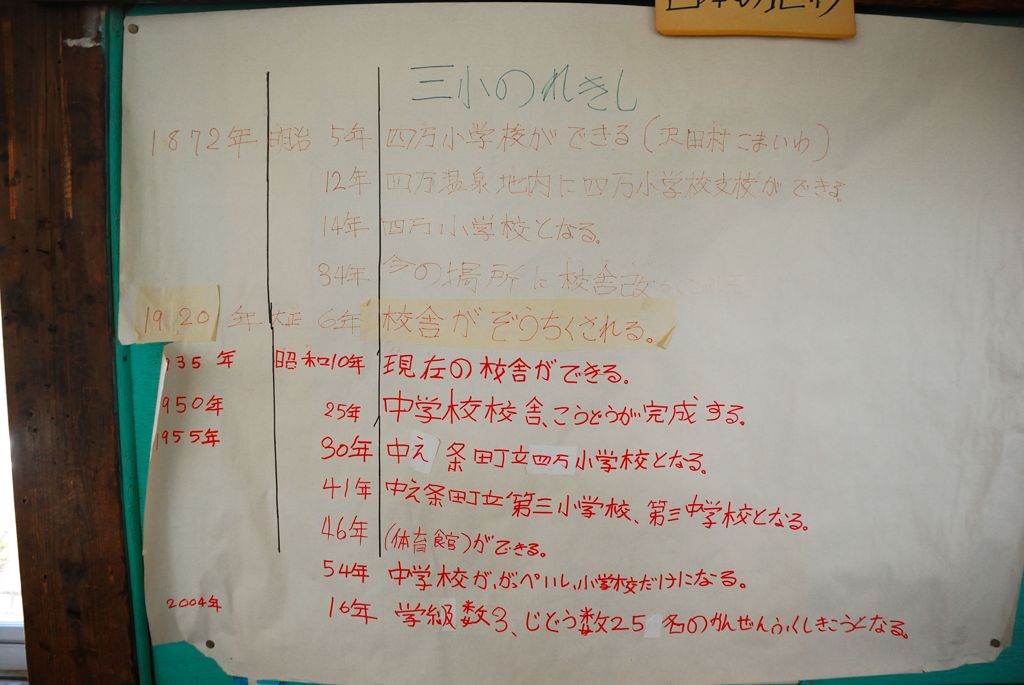 三小のれきし
1872年 明治 5年 四万小学校ができる(沢田村こまいわ)
12年 四万温泉地内に四万小学校支校ができる。
14年 四万小学校となる。
34年 今の場所に校舎改
1920年 大正 6年 校舎がぞうちくされる。
935年 昭和10年 現在の校舎ができる。
950年 25年 中学校校舎、こうどうが完成する。
955年 30年 中え条町立四万小学校となる。
41年 中え条町立第三小学校、第三中学校となる。
46年 (体育館)ができる。
54年 中学校が、がっぺいし、小学校だけになる。
2004年 16年 学級数3、じどう数25名のかんぜんふくしきこうとなる。